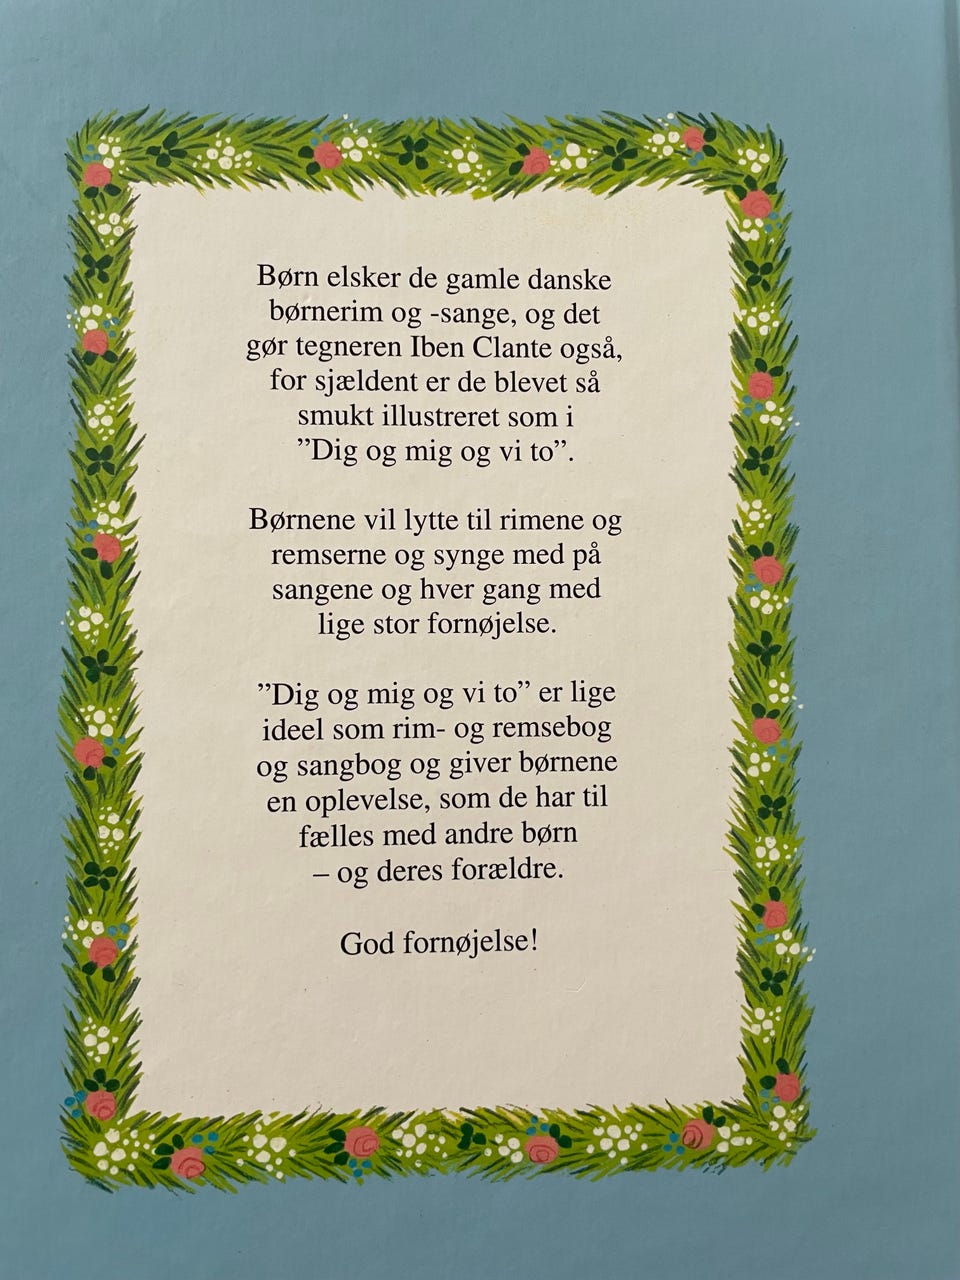 Børn elsker de gamle danske
børnerim og -sange, og det
gør tegneren Iben Clante også,
for sjældent er de blevet så
smukt illustreret som i
”Dig og mig og vi to”.
Børnene vil lytte til rimene og
remserne og synge med på
sangene og hver gang med
lige stor fornøjelse.
”Dig og mig og vi to” er lige
ideel som rim- og remsebog
og sangbog og giver børnene
en oplevelse, som de har til
fælles med andre børn
– og deres forældre.
God fornøjelse!